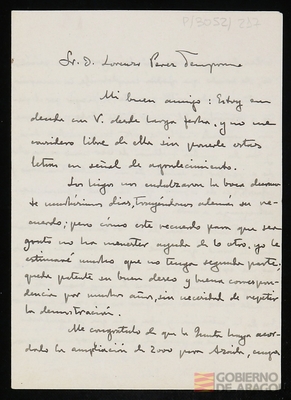 P/3052/232
Sr. D. Lorenzo Perez Temprano
Mi buen amigo: Estoy en
deuda con V. desde larga fecha, y no me
considero libre de ella sin ponerle estas
letras en señal de agradecimiento.
Los higos nos endulzaron la boca durante
muchísimos días, trayéndonos además su re-
cuerdo; pero cómo este recuerdo para que sea
grato no ha menester ayuda de lo otro, yo le
estimaré mucho que no tenga segunda parte;
queda patente su buen deseo y buena correspon-
dencia por muchos años, sin necesidad de repetir
la demostración.
Me congratulo de que la Junta haya acor-
dado la ampliación de 2000 para
GOBIERNO
DE ARAGON